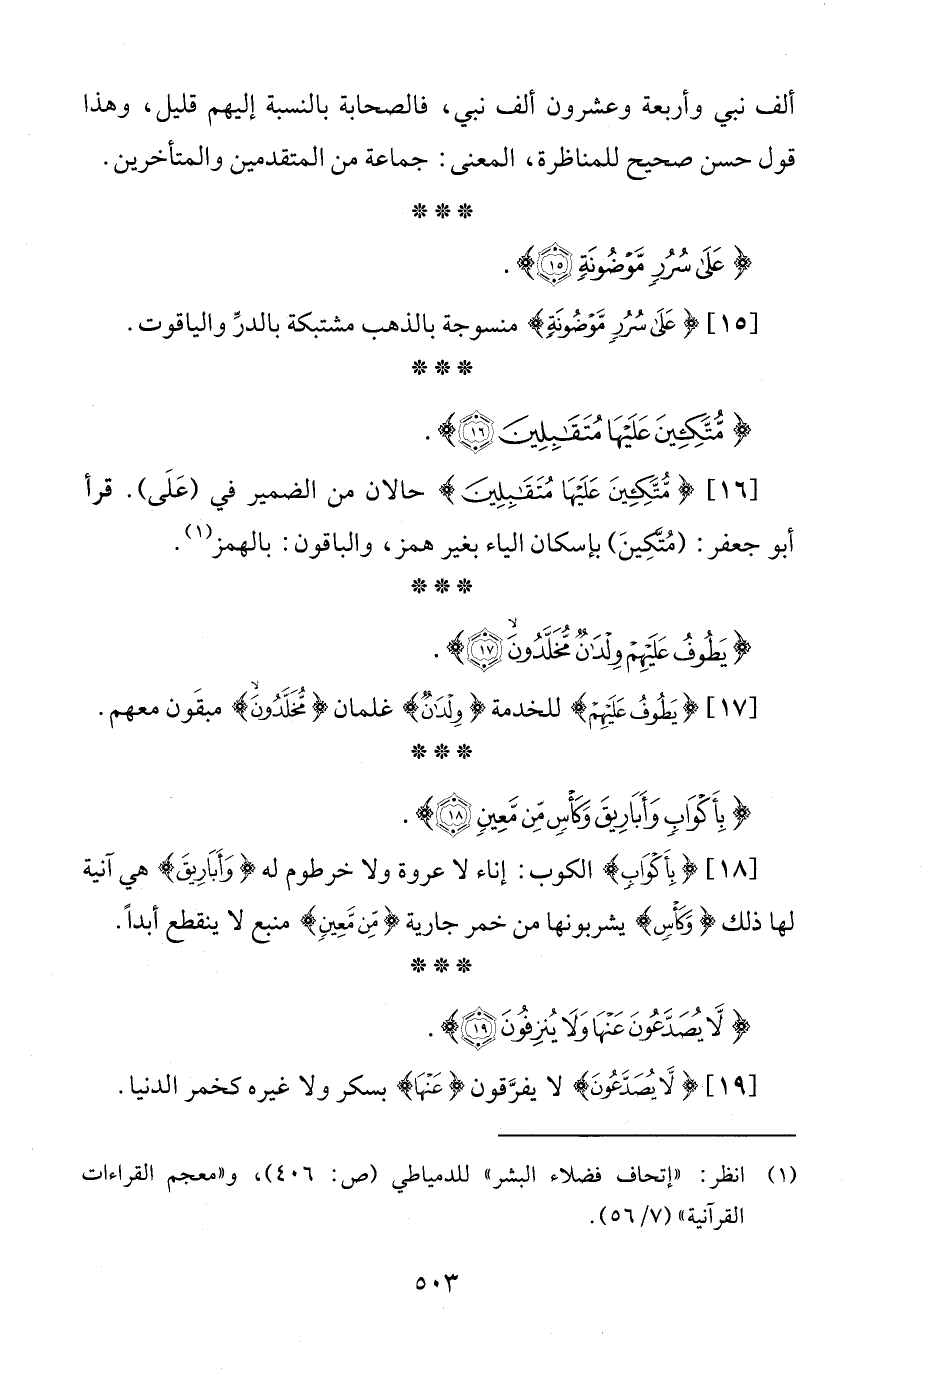 ألف نبي وأربعة وعشرون ألف نبي، فالصحابة بالنسبة إليهم قليل، وهذا
قول حسن صحيح للمناظرة، المعنى: جماعة من المتقدمين والمتأخرين.
* * *
﴿ عَلَىٰ سُرُرٍ مَّوْضُونَةٍ ١٥ ﴾.
[١٥] ﴿ عَلَىٰ سُرُرٍ مَّوْضُونَةٍ ﴾ منسوجة بالذهب مشتبكة بالدرِّ والياقوت.
* * *
﴿ مُّتَّكِـِٔينَ عَلَيْهَا مُتَقَـٰبِلِينَ ١٦ ﴾.
[١٦] ﴿ مُّتَّكِـِٔينَ عَلَيْهَا مُتَقَـٰبِلِينَ ﴾ حالان من الضمير في (عَلَى). قرأ
أبو جعفر: (مُتَّكِينَ) بإسكان الياء بغير همز، والباقون: بالهمز(١).
* * *
﴿ يَطُوفُ عَلَيْهِمْ وِلْدَٰنٌ مُّخَلَّدُونَۙ ١٧ ﴾.
[١٧] ﴿ يَطُوفُ عَلَيْهِمْ ﴾ للخدمة ﴿ وِلْدَٰنٌ ﴾ غلمان ﴿ مُّخَلَّدُونَۙ ﴾ مبقَون معهم.
* * *
﴿ بِأَكْوَابٍ وَأَبَارِيقَ وَكَأْسٍ مِّن مَّعِينٍ ١٨ ﴾.
[١٨] ﴿ بِأَكْوَابٍ ﴾ الكوب: إناء لا عروة ولا خرطوم له ﴿ وَأَبَارِيقَ ﴾ هي آنية
لها ذلك ﴿ وَكَأْسٍ ﴾ يشربونها من خمر جارية ﴿ مِّن مَّعِينٍ ﴾ منبع لا ينقطع أبداً.
* * *
﴿ لَّا يُصَدَّعُونَ عَنْهَا وَلَا يُنزِفُونَ ١٩ ﴾.
[١٩] ﴿ لَّا يُصَدَّعُونَ ﴾ لا يفرَّقون ﴿ عَنْهَا ﴾ بسكر ولا غيره كخمر الدنيا.
(١) انظر: «إتحاف فضلاء البشر» للدمياطي (ص: ٤٠٦)، و«معجم القراءات
القرآنية» (٧/ ٥٦).
٥٠٣